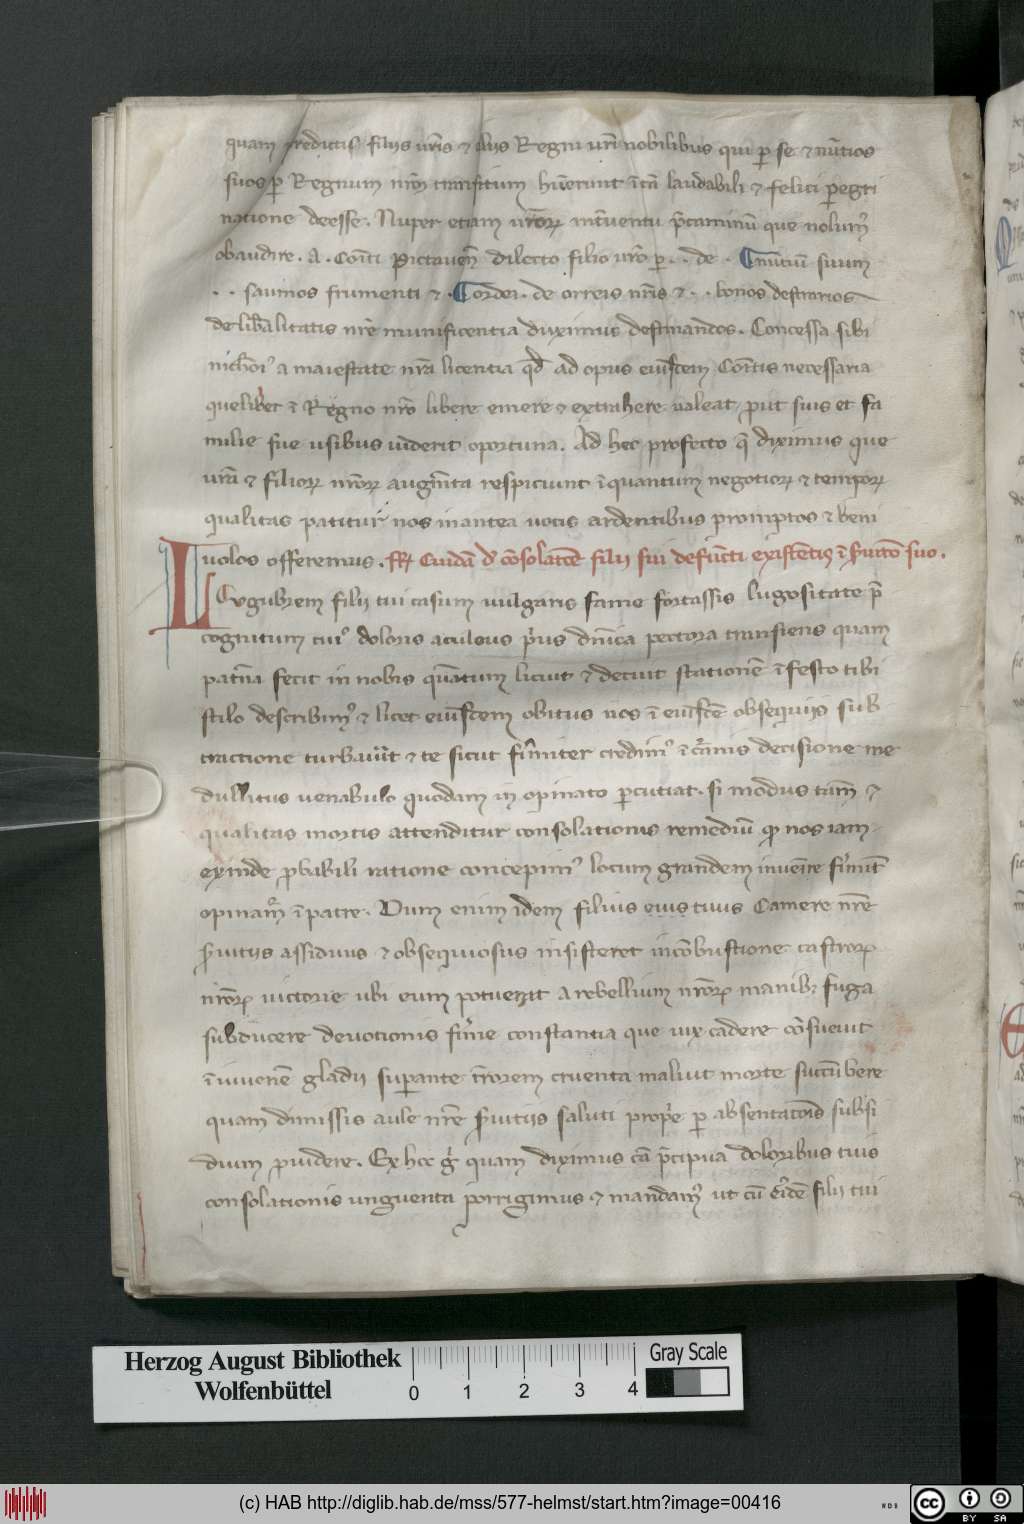 quam predictis filijs ur̄is ⁊ alijs Regni ur̄i nobilibus qui ꝑ se ⁊ nūtios
suos ꝑ Regnum nr̄m transitum hūerunt ī tā laudabili ⁊ felici peregri
natione deesse. Nuper etiam ur̄oꝝ int̄uentu p̄caminū que nolum᾽
obaudire. A. Comiti Pictauen̄ dilecto filio ur̄o ꝑ . . de . C nūtiū suum
. . saumos frumenti ⁊ . C ordei . de orreis nr̄is ⁊ . . bonos destrarios
de libalitatis nr̄e munificentia duximus destinandos. Concessa sibi
nichōi᾽ a maiestate nr̄a licentia qd̄ ad opus eiusdem Comitis necessaria
quelibet ī Regno nr̄o libere emere ⁊ extrahere ualeat prout suis et fa
milie sue usibus uiderit oportuna. Ad hec profecto q̄ diximus que
ur̄a ⁊ filioꝝ nr̄oꝝ augm̄ta respiciunt ī quantum negotioꝝ ⁊ tempoꝝ
qualitas patitur nos inantea uotis ardentibus promptos ⁊ beni
uolos offeremus. Cuidā d᾽ cōsolatōe filij sui defūcti existētis ī s̄uitio suo.
Lugubrem filij tui casum uulgaris fame fortassis lugositate p̄
cognitum cui᾽ doloris aculeus p̄us dn̄ica pectora transiens quam
pat̄na fecit in nobis quātum licuit ⁊ decuit stationē ī festo tibi
stilo describim᾽ ⁊ licet eiusdem obitus nos ī eiusdē obsequijs sub
tractione turbauit ⁊ te sicut firmiter credim᾽ ī decisione me
dullitus uenabulo quodam in opinato ꝑcutiat. si modus tām ⁊
qualitas mortis attenditur consolationis remediū nos iam
exinde ꝓbabili ratione concepim᾽ locum grandem inuenire
ī patre. Dum enim idem filius eius tuus Camere nr̄e
s̄uitijs assiduus ⁊ obsequiosus insisteret incōbustione castroꝝ
nr̄oꝝ uictorie ubi eum potuerit a rebellium nr̄oꝝ manib᾽ fuga
subducere deuotionis firme constantia que uix cadere cōsueuit
ī iuuenē gladij superante t̄rorem cruenta maluit morte succūbere
quam dimissis aule nr̄e s̄uitijs saluti prop̄e ꝑ absentatōis subsi
dium ꝓuidere. Ex hoc g᾽ quam diximus cā p̄cipua doloribus tuis
consolationis unguenta porrigimus ⁊ mandam᾽ ut cū filij tui
Herzog August Bibliothek
Wolfenbüttel
0 1 2 3 4
Gray Scale
(c) HAB http://diglib.hab.de/mss/577-helmst/start.htm?image=00416
WDB
cc BY SA